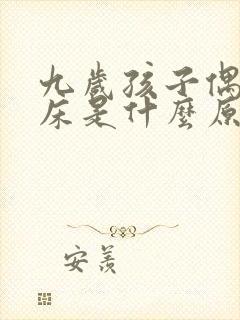 九歲孩子偶
床是什麼原
安羨